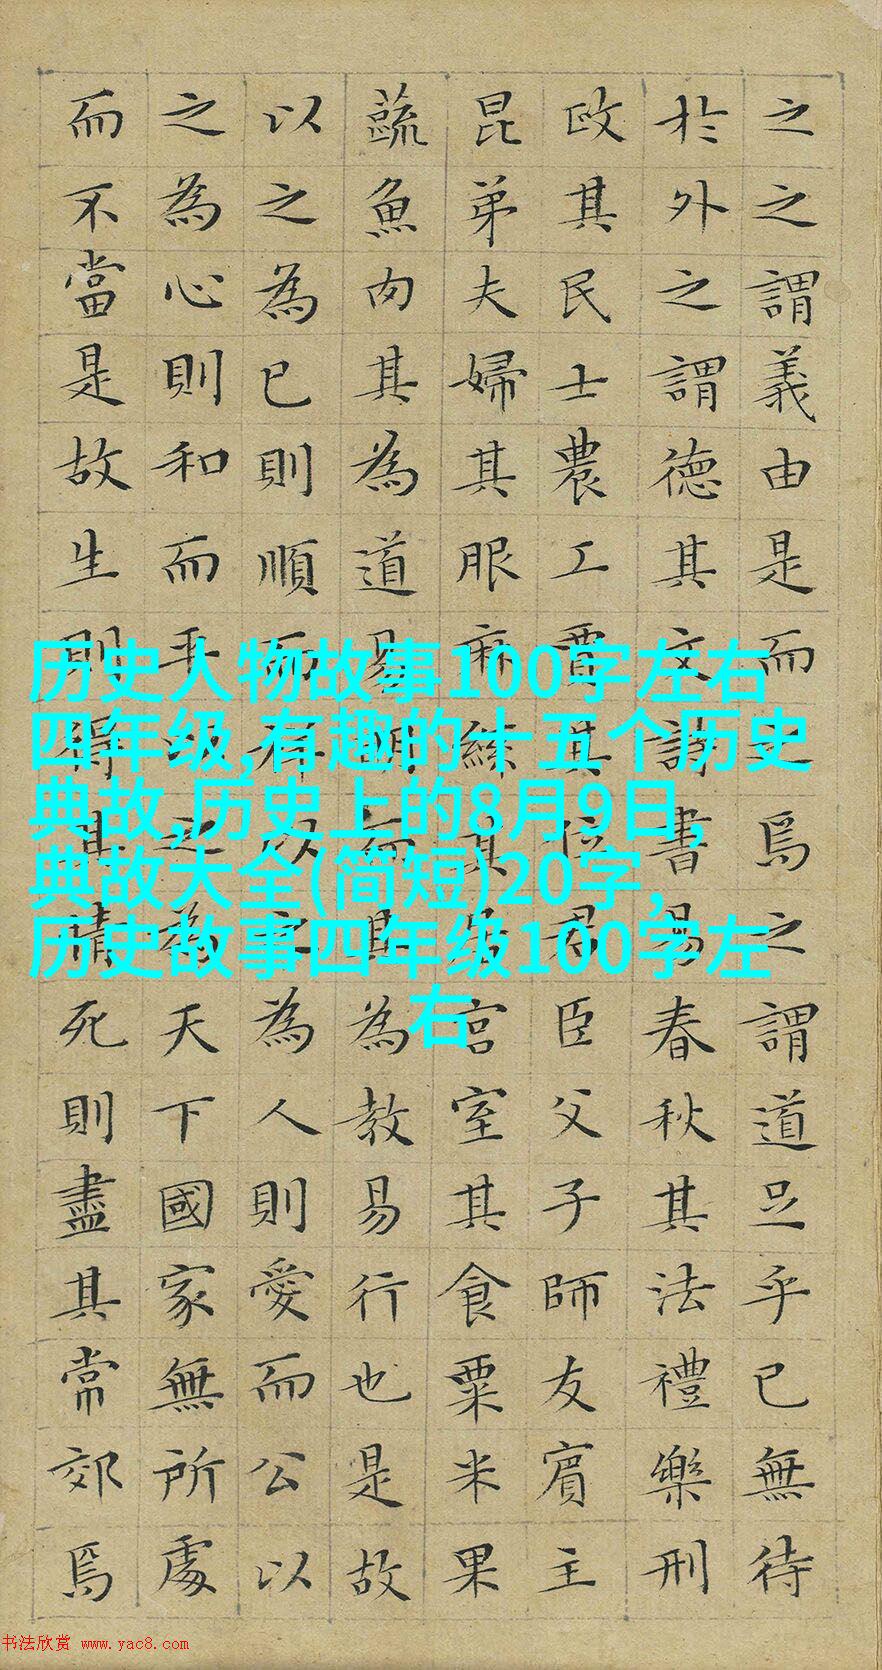 之之謂義由是而之焉之謂道足乎已無待
於外之謂德其文詩書易春秋其法禮樂刑
政其民士農工賈其位君臣父子師友賓主
昆弟夫婦其服麻絲其居宮室其食粟米果
蔬魚肉其為道易明而其為教易行也是故
以之為已則順而祥以之為人則愛而公以
之為心則和而平以之為天下國家無所處
而不當是故生則得其情死則盡其常郊焉
历史人物故事100字左右
四年级,有趣的十五个历史
典故,历史上的8月9日,
典故大全(简短)20字,
历史故事四年级100字左
右
书法欣赏 www.yac8.com